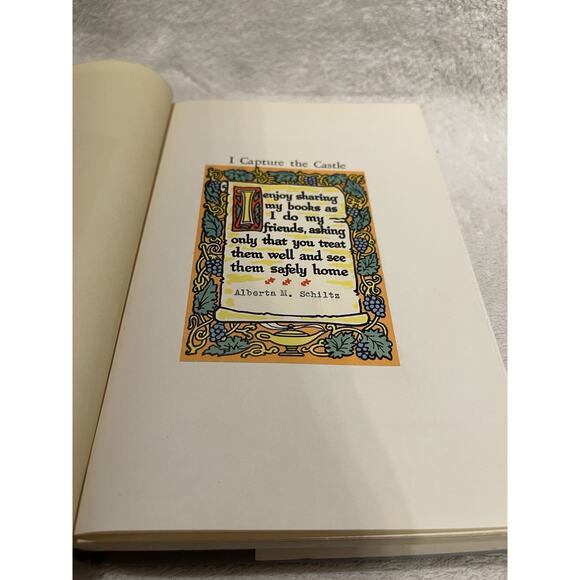 I Capture the Castle
I enjoy sharing
my books as
I do my
friends, asking
only that you treat
them well and see
them safely home
Alberta M. Schiltz